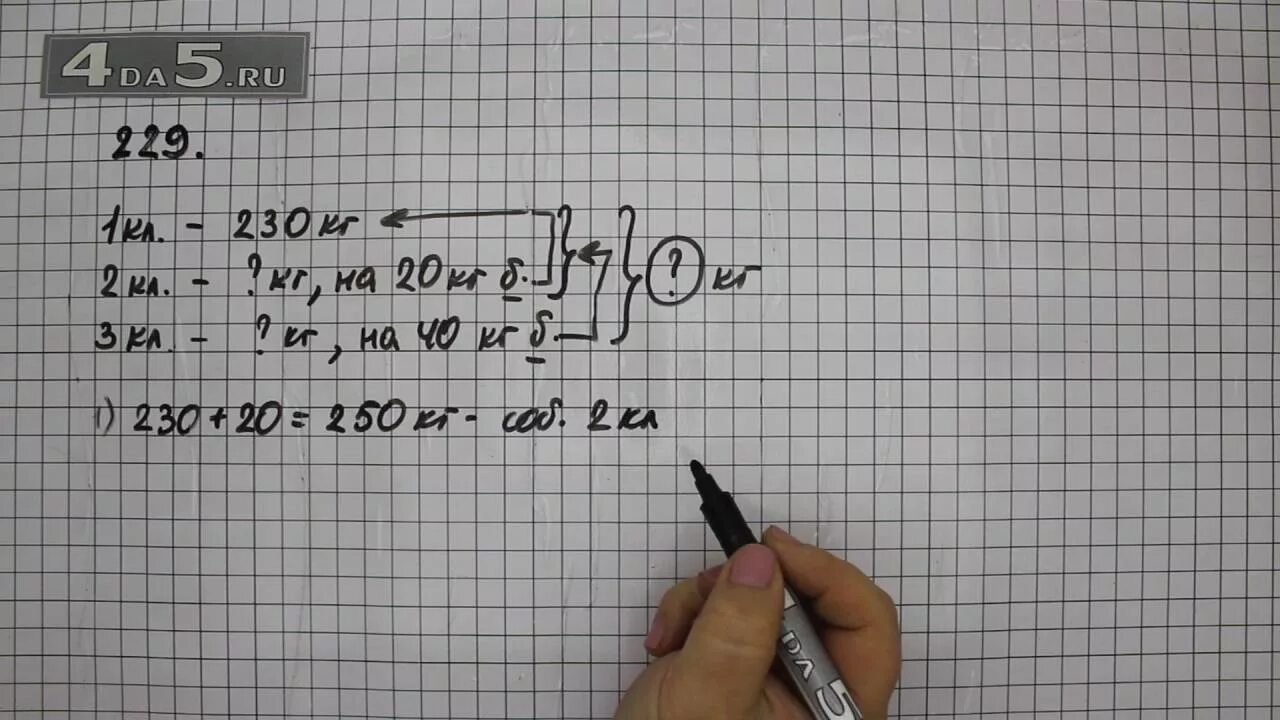 4DA5.RU
229.
1кл. - 230 кг
2кл. - ? кг, на 20 кг б.
3кл. - ? кг, на 40 кг б.
? кг
1) 230 + 20 = 250 кг - соб. 2 кл
DA5